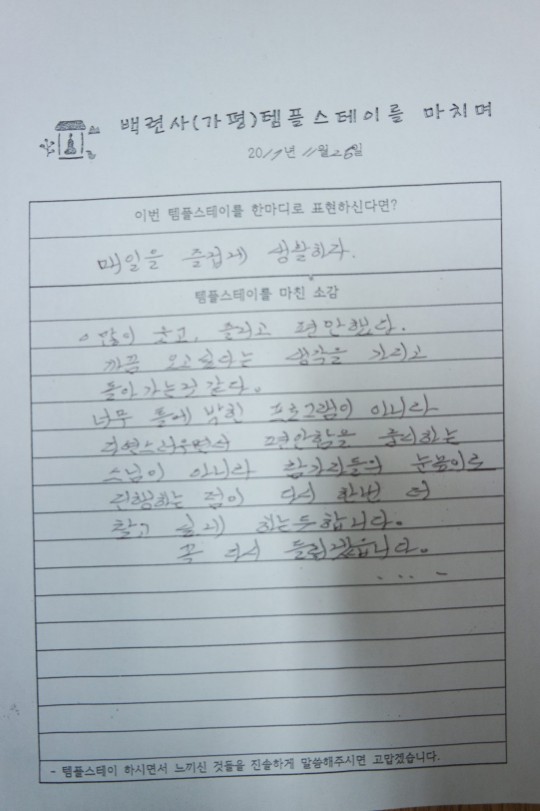 백련사(가평)템플스테이를 마치며
2019년 11월 26일
이번 템플스테이를 한마디로 표현하신다면?
매일을 즐겁게 생활하라.
템플스테이를 마친 소감
많이 웃고, 즐기고 편안했다.
가끔 오고싶다는 생각을 가지고
돌아가는것 같다.
너무 틀에 박힌 프로그램이 아니라
자연스러우면서 편안함을
스님이 아니라 참가자들의 눈높이로
진행하는 점이 다시 한번 더
찾고 싶게 하는듯합니다.
꼭 다시 들리겠습니다.
....
- 템플스테이 하시면서 느끼신 것들을 진솔하게 말씀해주시면 고맙겠습니다.